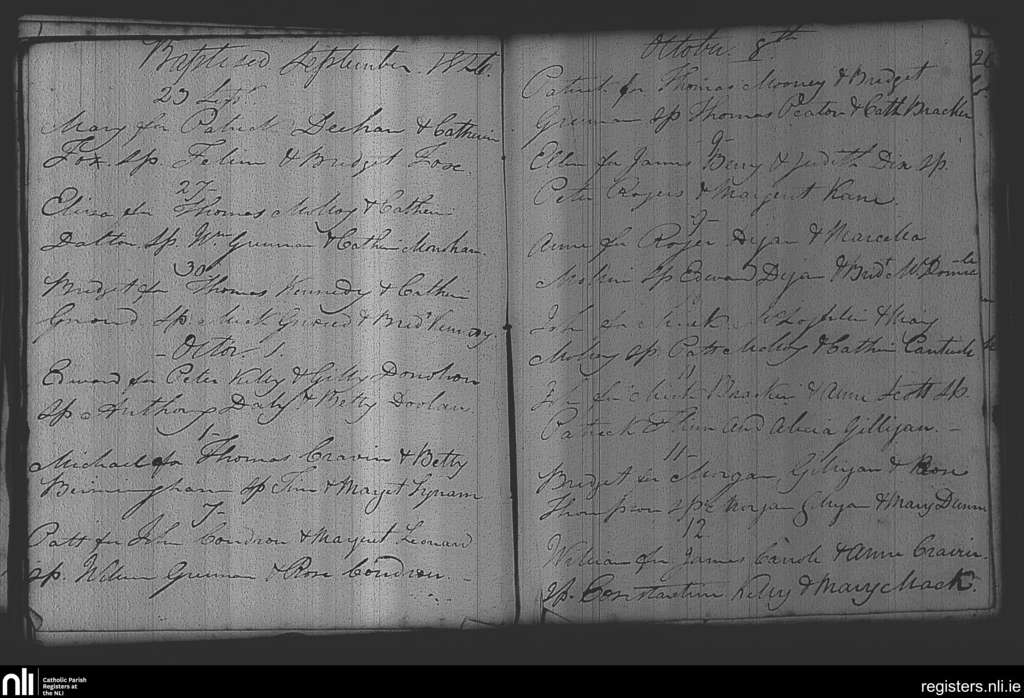 Baptised September. 1826.
23 Sept.
Mary for Patrick Deehan & Catherin
Fox. Sp. Felim & Bridget Foxe.
27-
Eliza for Thomas Molloy & Cather
Dalton Sp. Wm Grennan & Cathe Monahan.
30
Bridget for Thomas Kennedy & Cather
Sp Mick & Brid Kennedy.
- Octor. 1.
Edward for Peter Kelly & Gilly Donohoe
Sp Anthony Daly & Betty Doolan.
1-
Michael for Thomas Cravin & Betty
Birmingham Sp Tim & Marget Lynam
7
Patt for John Condron & Margret Leonard
Sp. William Grennan & Rose Condron. -
October. 8th
Patrick for Thomas Mooney & Bridget
Grennan Sp Thomas & Cath Bracken
9-
Ellen for James Berry & Judith Dix Sp.
Peter Rogers & Margret Kane.
9-
Anne for Roger Dyan & Marcella
Sp Edward Dyan & Bridt
John for Mick McLoghlin & Mary
Molloy Sp. Patt Molloy & Cathrin
11
for Mich Bracken & Anne Scott Sp.
Patrick and Alicia Gilligan. -
11-
Bridget for Morgan Gilligan & Rose
Thompson Sps Morgan & Mary Dunn
12
William for James Carrole & Anne Cravin.
Sp. Constantine Kelly & Mary Mack.
26
nli
Catholic Parish
Registers at
the NLI
registers.nli.ie